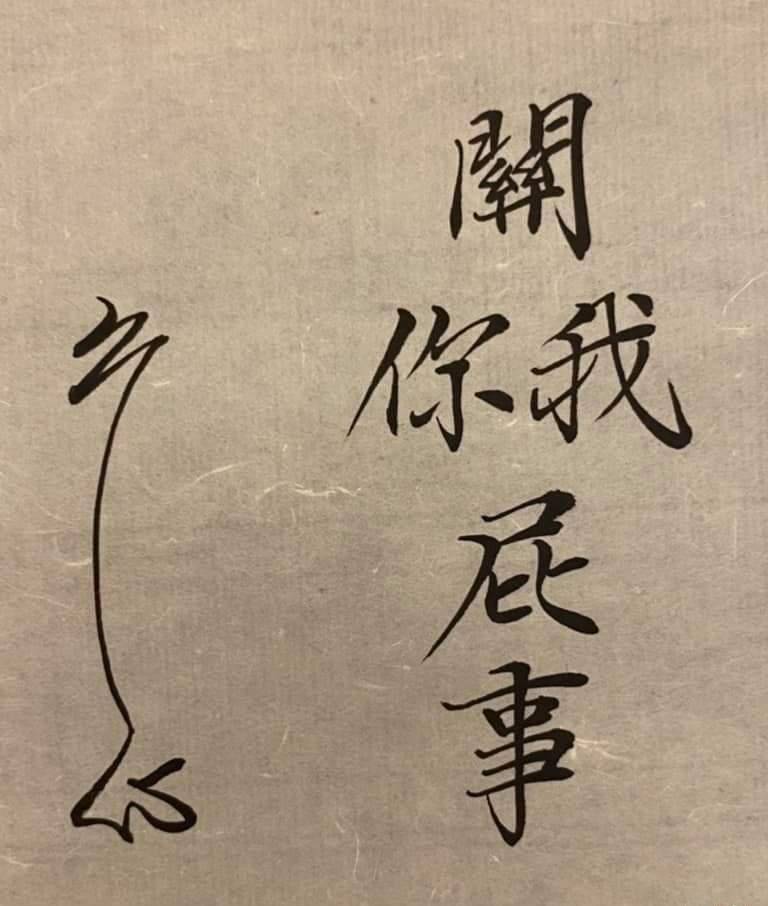 關我你屁事